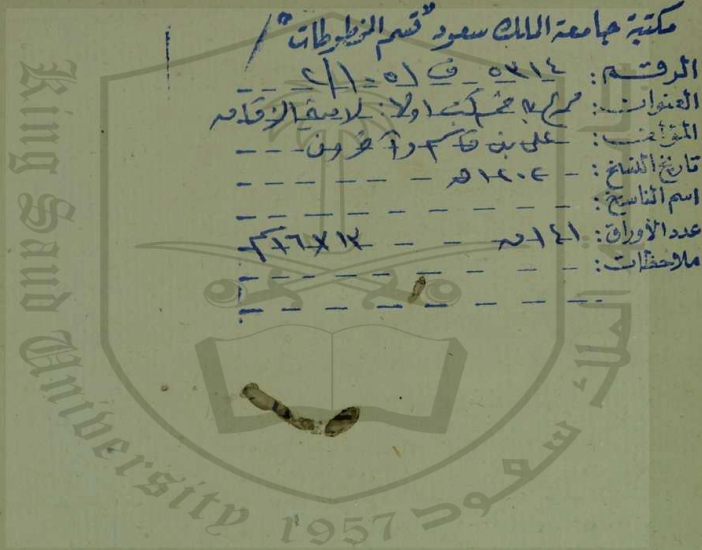 مكتبة جامعة الملك سعود "قسم المخطوطات"
الرقم: ٥٣١٤ ف ٥١ - ٢/١
العنوان: أولها: لامية الزقاق
المؤلف: علي بن قاسم وآخرون
تاريخ النسخ: ١٢٠٤ هـ
اسم الناسخ:
عدد الأوراق: ١٤١ ق
ملاحظات:
King Saud University 1957
جامعة الملك سعود